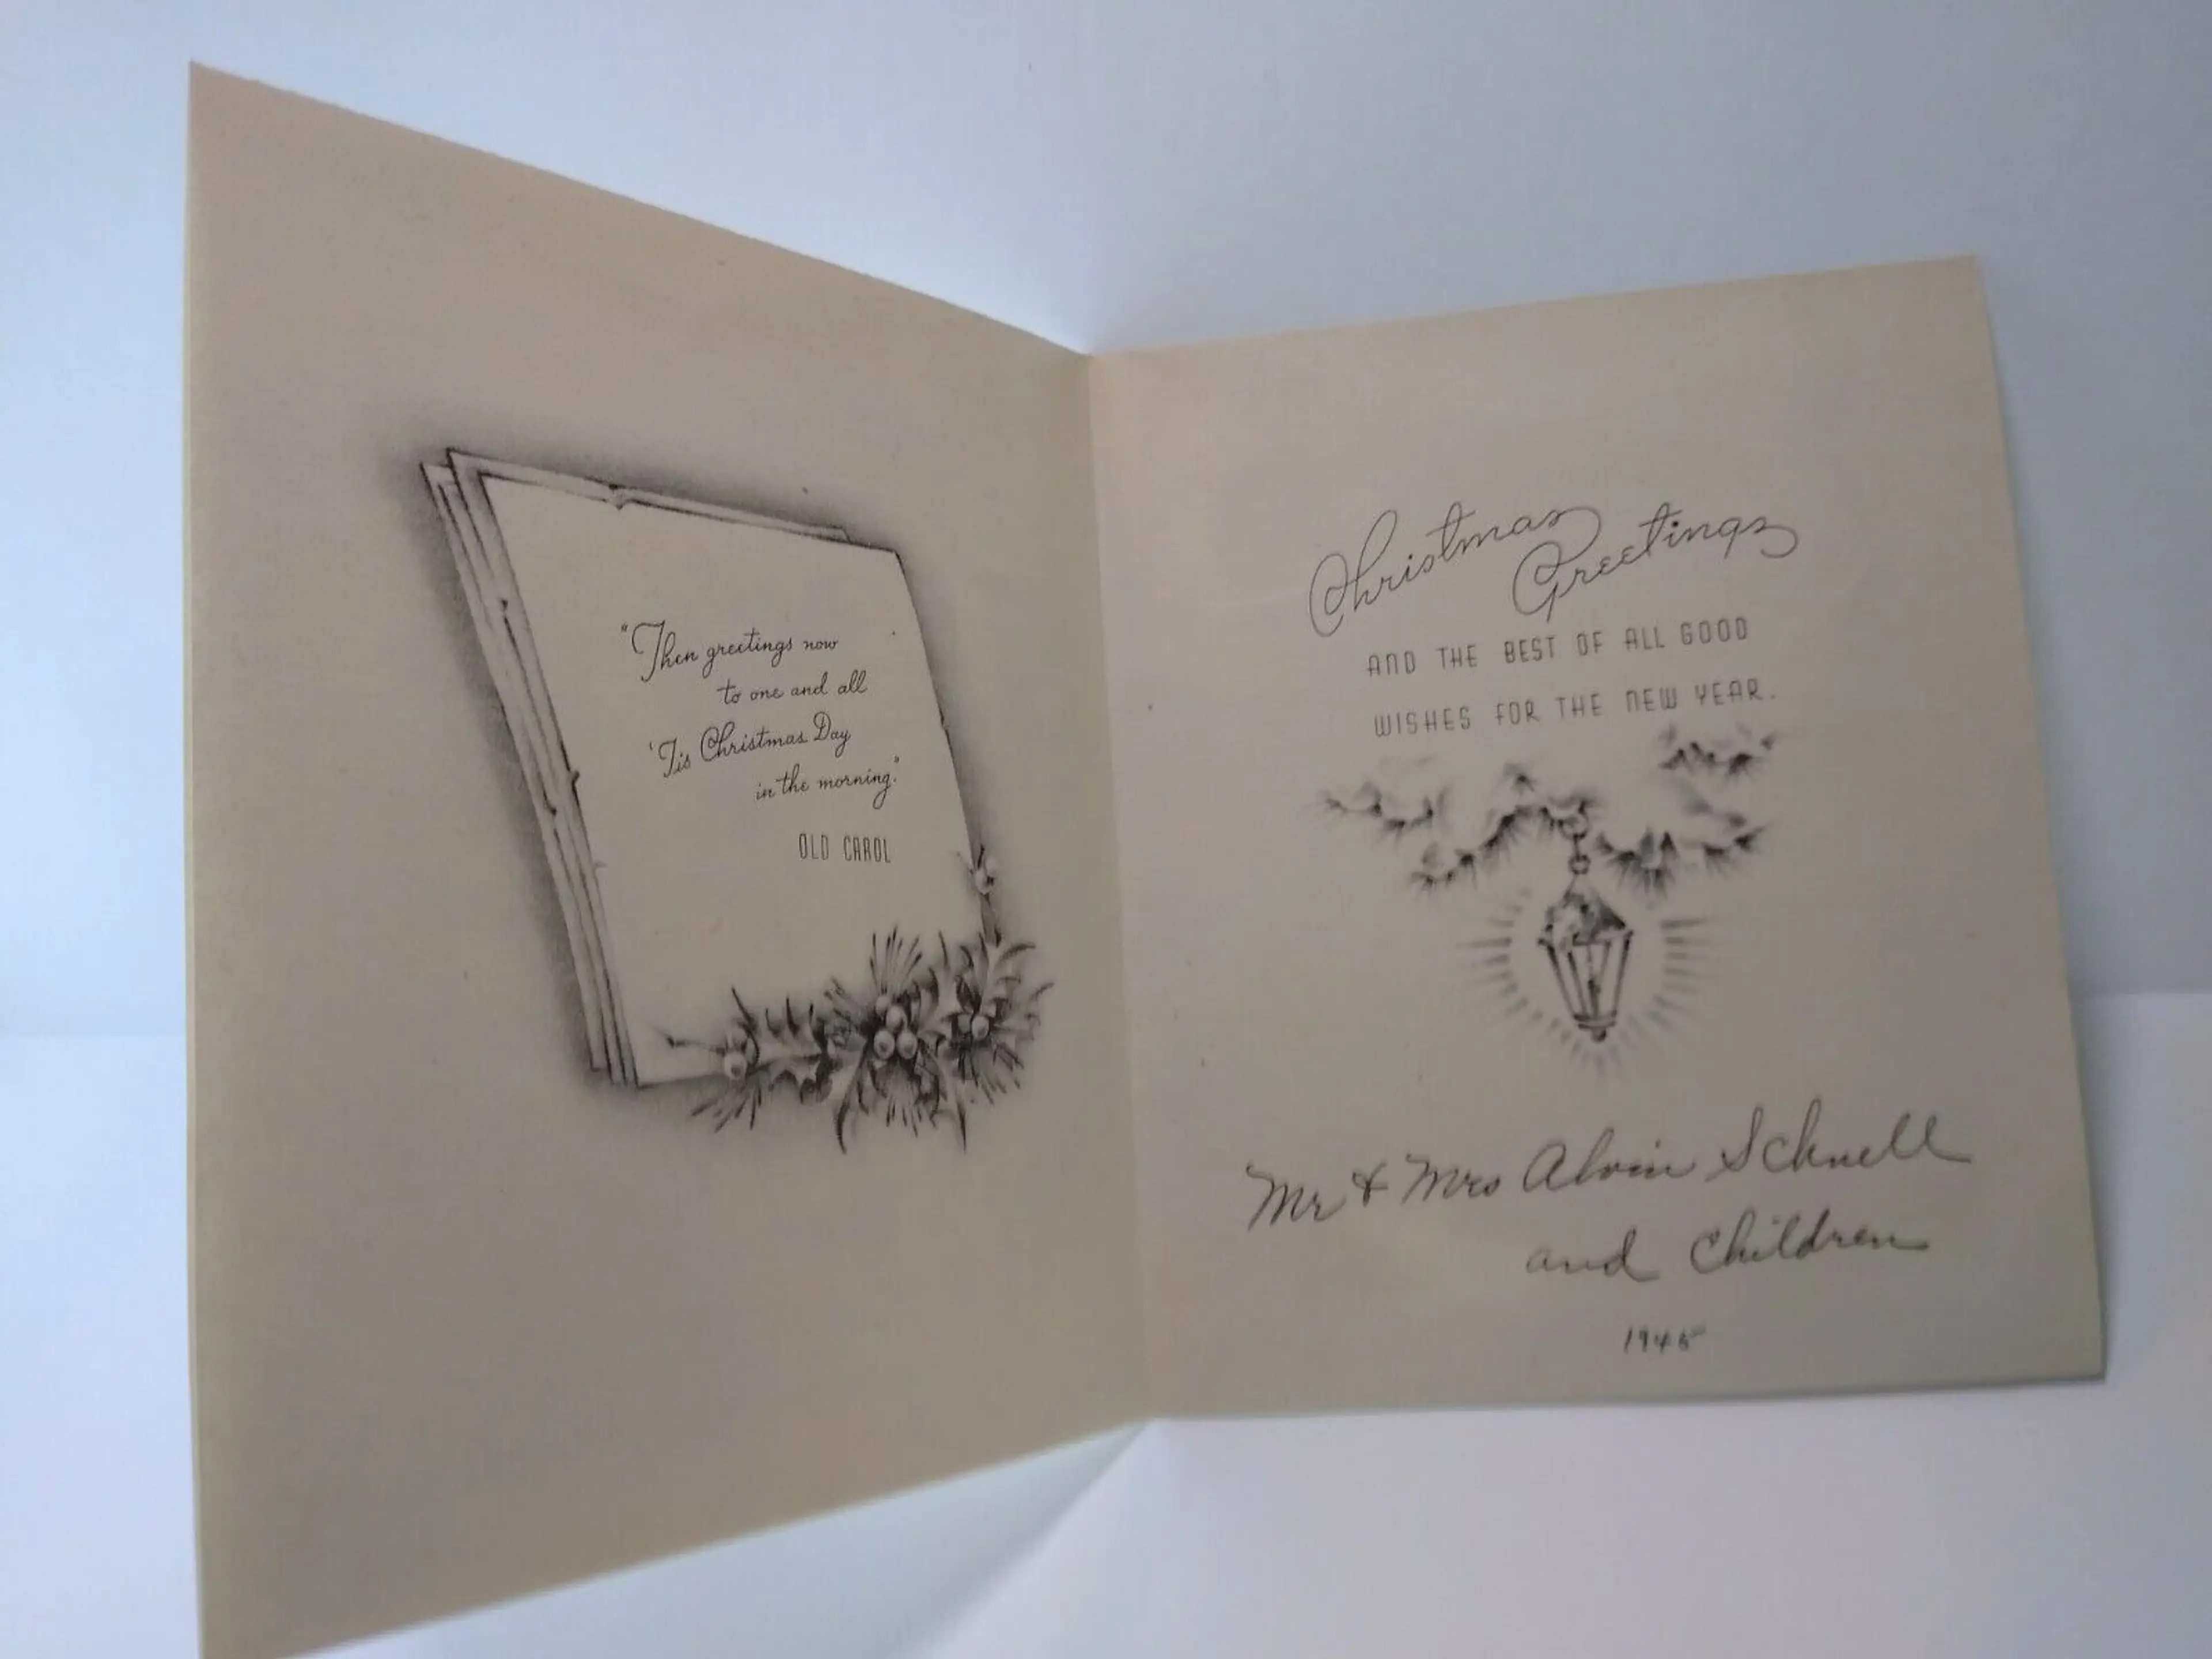 "Then greetings now
to one and all
'Tis Christmas Day
in the morning."
OLD CAROL
Christmas
Greetings
AND THE BEST OF ALL GOOD
WISHES FOR THE NEW YEAR.
Mr & Mrs Alvin Schnell
and Children
1945